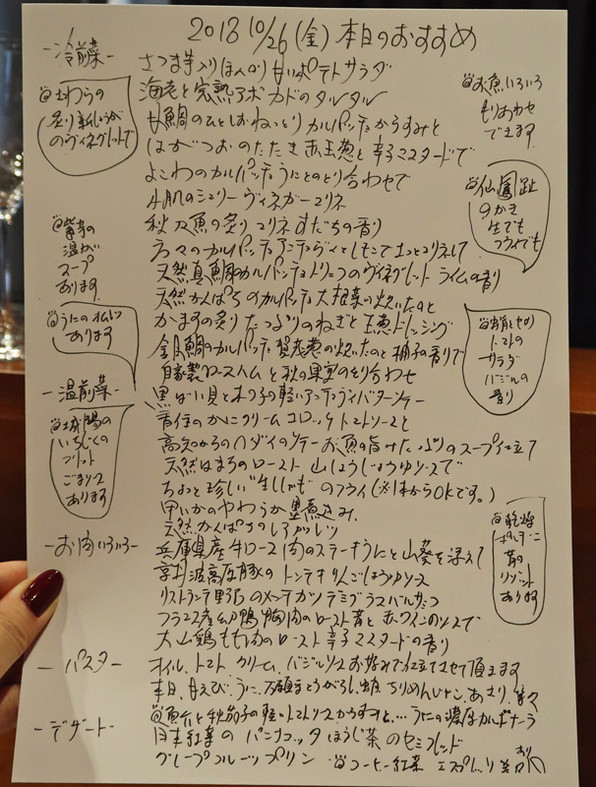 2018 10/26 (金) 本日のおすすめ
-冷前菜-
さつま芋入りほんのり甘いポテトサラダ
海老と完熟アボカドのタルタル
甘鯛のひとしおねっとりカルパッチョからすみと
はがつおのたたき 赤玉葱と辛子マスタードで
よこわのカルパッチョうにとのとり合わせで
のシェリーヴィネガーマリネ
秋刀魚の炙りマリネすだちの香り
のカルパッチョアンディーヴと
天然真鯛カルパッチョトリュフのヴィネグレット ライムの香り
天然かんぱちのカルパッチョ大根菜の炊いたのと
かますの炙り たっぷりのねぎと玉葱ドレッシング
金目鯛のカルパッチョ 賀茂葱の炊いたのと柚子の香りで
自家製ロースハムと秋の果実のとり合わせ
@さわらの
炙り新しょうが
のヴィネグレットで
@お魚いろいろ
もりあわせ
できます。
@仙鳳趾
のかき
生でも
フライでも
@紫芋の
温かい
スープ
あります
@うにのオムレツ
あります
トマトの
サラダ
バジルの
香り
-温前菜-
黒ばい貝と木の子の軽いアンディーヴバターソテー
香住のかにクリームコロッケ トマトソースと
高知からのハダイのソテー お魚の旨みたっぷりのスープ仕立て
天然はまちのロースト 山しょうじょうゆソースで
ちょっと珍しい"生ししゃも"のフライ (※1本からOKです。)
甲いかのやわらか墨煮込み
天然かんぱちの
@城陽の
いちじくの
フリット
ごまソース
あります
-お肉いろいろ-
兵庫県産牛ロース肉のステーキうにと山葵を添えて
京丹波高原豚のトンテキりんごしょうゆソース
リストランテ野呂のメンチカツデミグラスバルサミコ
フランス産 鴨胸肉のロースト 茸と赤ワインのソースで
大山鶏もも肉のロースト 辛子マスタードの香り
@乾燥
ポルチーニ
茸の
リゾット
あります
-パスタ-
オイル、トマト クリーム、バジルソースお好みで仕立てさせて頂きます
本日、甘えび、うに、万願寺とうがらし、ちりめんじゃこ、あさり、
@魚介と秋茄子の軽いトマトソースからすみと… うにの濃厚カルボナーラ
-デザート-
和紅茶のパンナコッタ ほうじ茶のセミフレッド
グレープフルーツプリン @コーヒー 紅茶 エスプレッソ